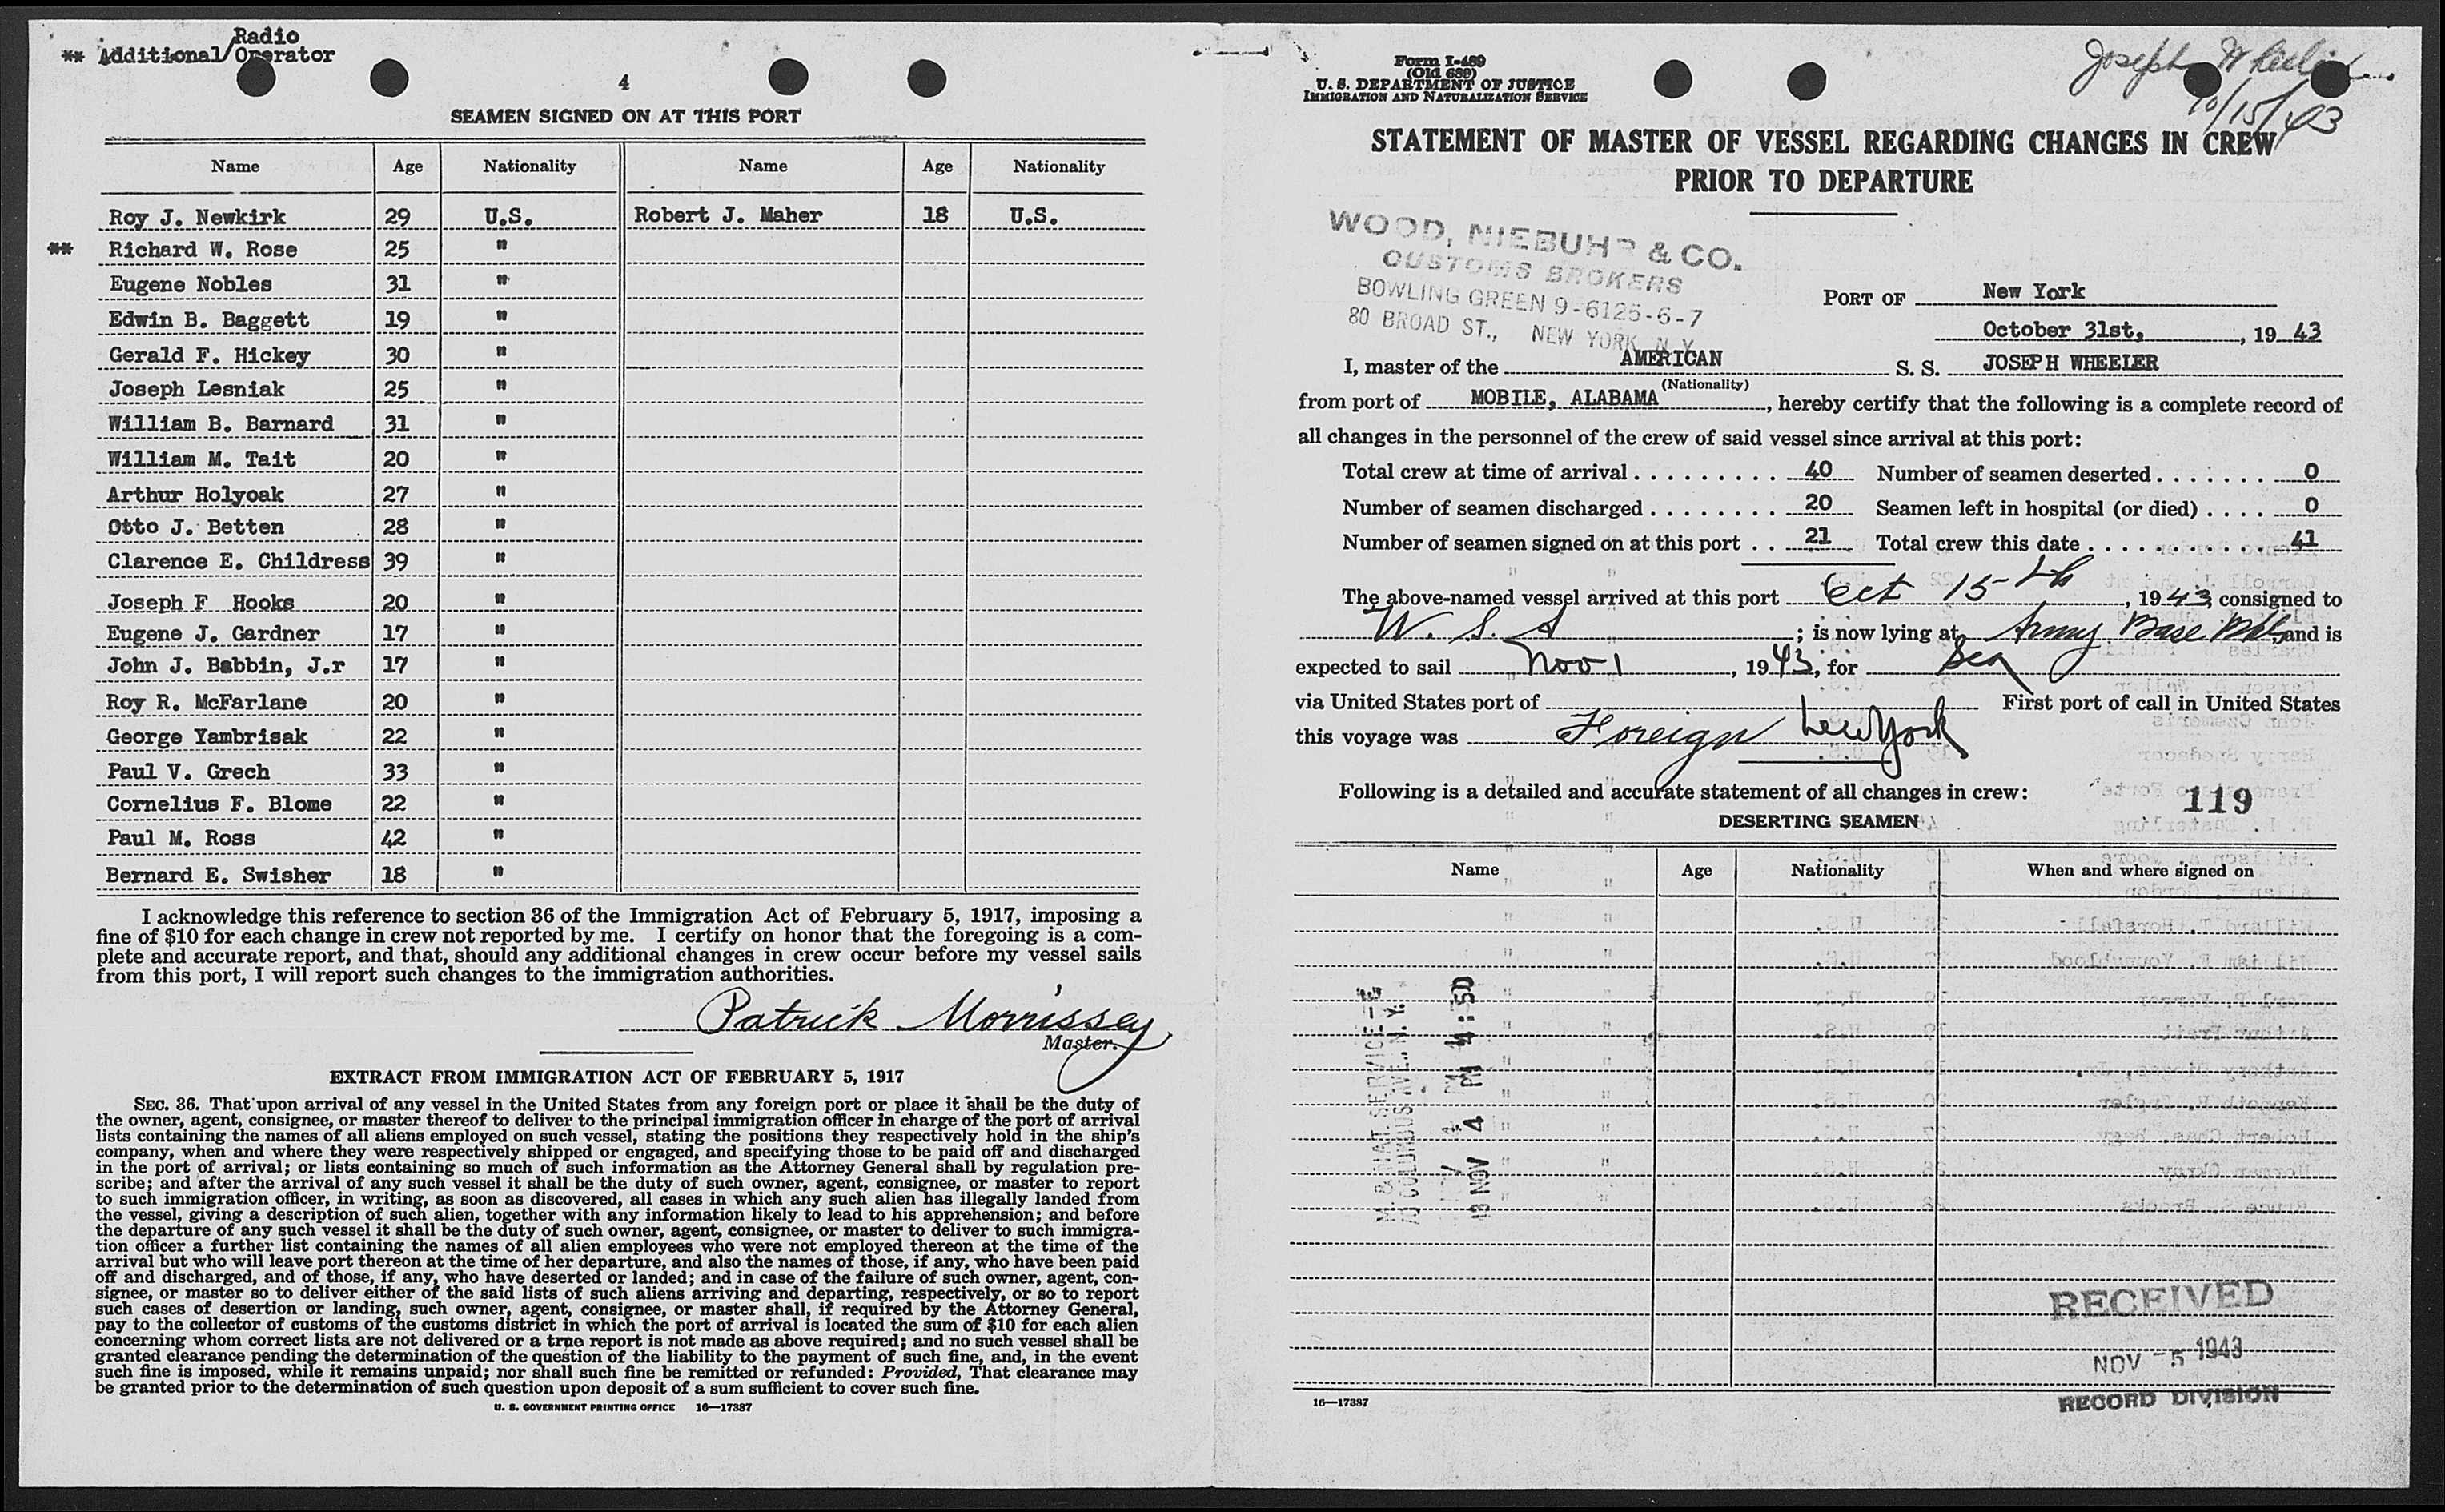 Radio
** Additional/Operator
4
SEAMEN SIGNED ON AT THIS PORT
Name Age Nationality Name Age Nationality
Roy J. Newkirk 29 U.S. Robert J. Maher 18 U.S.
** Richard W. Rose 25 "
Eugene Nobles 31 "
Edwin B. Baggett 19 "
Gerald F. Hickey 30 "
Joseph Lesniak 25 "
William B. Barnard 31 "
William M. Tait 20 "
Arthur Holyoak 27 "
Otto J. Betten 28 "
Clarence E. Childress 39 "
Joseph F Hooks 20 "
Eugene J. Gardner 17 "
John J. Babbin, J.r 17 "
Roy R. McFarlane 20 "
George Yambrisak 22 "
Paul V. Grech 33 "
Cornelius F. Blome 22 "
Paul M. Ross 42 "
Bernard E. Swisher 18 "
I acknowledge this reference to section 36 of the Immigration Act of February 5, 1917, imposing a
fine of $10 for each change in crew not reported by me. I certify on honor that the foregoing is a com-
plete and accurate report, and that, should any additional changes in crew occur before my vessel sails
from this port, I will report such changes to the immigration authorities.
Patrick Morrissey
Master.
EXTRACT FROM IMMIGRATION ACT OF FEBRUARY 5, 1917
SEC. 36. That upon arrival of any vessel in the United States from any foreign port or place it shall be the duty of
the owner, agent, consignee, or master thereof to deliver to the principal immigration officer in charge of the port of arrival
lists containing the names of all aliens employed on such vessel, stating the positions they respectively hold in the ship's
company, when and where they were respectively shipped or engaged, and specifying those to be paid off and discharged
in the port of arrival; or lists containing so much of such information as the Attorney General shall by regulation pre-
scribe; and after the arrival of any such vessel it shall be the duty of such owner, agent, consignee, or master to report
to such immigration officer, in writing, as soon as discovered, all cases in which any such alien has illegally landed from
the vessel, giving a description of such alien, together with any information likely to lead to his apprehension; and before
the departure of any such vessel it shall be the duty of such owner, agent, consignee, or master to deliver to such immigra-
tion officer a further list containing the names of all alien employees who were not employed thereon at the time of the
arrival but who will leave port thereon at the time of her departure, and also the names of those, if any, who have been paid
off and discharged, and of those, if any, who have deserted or landed; and in case of the failure of such owner, agent, con-
signee, or master so to deliver either of the said lists of such aliens arriving and departing, respectively, or so to report
such cases of desertion or landing, such owner, agent, consignee, or master shall, if required by the Attorney General,
pay to the collector of customs of the customs district in which the port of arrival is located the sum of $10 for each alien
concerning whom correct lists are not delivered or a true report is not made as above required; and no such vessel shall be
granted clearance pending the determination of the question of the liability to the payment of such fine, and, in the event
such fine is imposed, while it remains unpaid; nor shall such fine be remitted or refunded: Provided, That clearance may
be granted prior to the determination of such question upon deposit of a sum sufficient to cover such fine.
U. S. GOVERNMENT PRINTING OFFICE 16—17387
Form I-489
(Old 689)
U. S. DEPARTMENT OF JUSTICE
IMMIGRATION AND NATURALIZATION SERVICE
Joseph Wheeler
10/15/43
STATEMENT OF MASTER OF VESSEL REGARDING CHANGES IN CREW
PRIOR TO DEPARTURE
WOOD, NIEBUHR & CO.
CUSTOMS BROKERS
BOWLING GREEN 9-6125-6-7
80 BROAD ST., NEW YORK N.Y.
PORT OF New York
October 31st, , 19 43
I, master of the AMERICAN S. S. JOSEPH WHEELER
(Nationality)
from port of MOBILE, ALABAMA , hereby certify that the following is a complete record of
all changes in the personnel of the crew of said vessel since arrival at this port:
Total crew at time of arrival . . . . . . . . . 40 Number of seamen deserted . . . . . . . 0
Number of seamen discharged . . . . . . . . 20 Seamen left in hospital (or died) . . . . 0
Number of seamen signed on at this port . . 21 Total crew this date . . . . . . . . . . . . 41
The above-named vessel arrived at this port Oct 15-th , 1943, consigned to
W. S. A ; is now lying at Army Base and is
expected to sail Nov 1 , 1943, for Sea
via United States port of First port of call in United States
this voyage was Foreign New York
Following is a detailed and accurate statement of all changes in crew: 119
DESERTING SEAMEN
Name Age Nationality When and where signed on
NOV 4 PM 4:50
RECEIVED
NOV -5 1943
RECORD DIVISION
16—17387